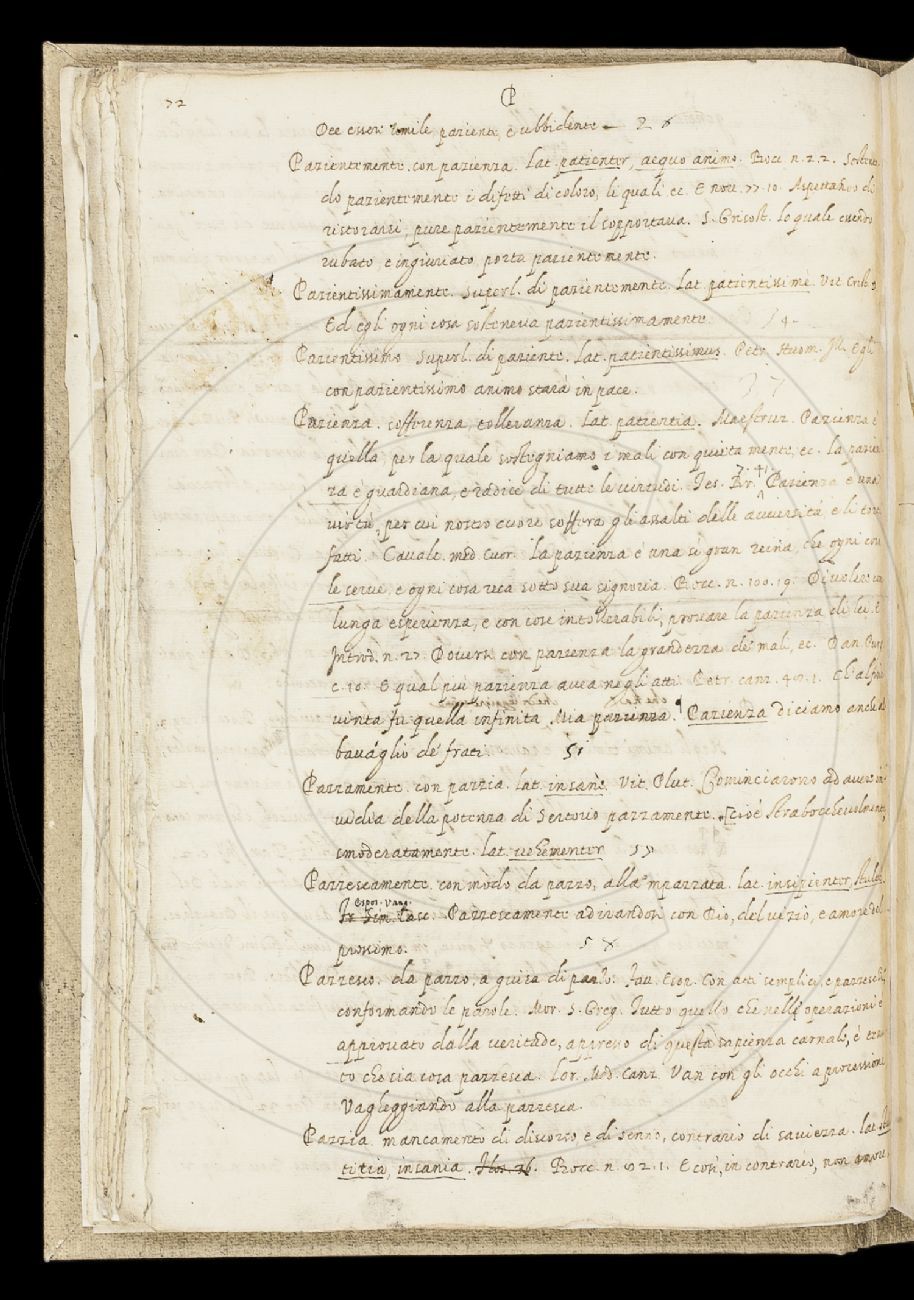 72
P
Dee esser umile, paziente, e ubbidente
Pazientemente. con pazienza. Lat. patienter, aequo animo. Bocc. n. 22.
do pazientemente i difetti di coloro, li quali ec. E nov. 77. 10. Aspettando di
ristorarsi, pure pazientemente il sopportava. S. Grisost. lo quale essendo
rubato, e ingiuriato, porta pazientemente.
Pazientissimamente. Superl. di pazientemente. Lat. patientissime. Vit. Crist.
Ed egli ogni cosa sosteneva pazientissimamente.
Pazientissimo. Superl. di paziente. Lat. patientissimus. Petr. Huom. Ill. Egli
con pazientissimo animo starà in pace.
Pazienza. sofferenza, tolleranza. Lat. patientia. Maestruz. Pazienza è
quella, per la quale sostegniamo i mali con quieta mente, ec. La pazien
za è guardiana, e radice di tutte le virtudi. Tes. Br. 7. 41. Pazienza è una
virtù, per cui nostro cuore soffera gli assalti delle avversità, e li torti
fatti. Cavalc. med. cuor. La pazienza è una sì gran reina, che ogni co
le serve, e ogni cosa reca sotto sua signoria. Bocc. n. 100. 19. Di volere con
lunga esperienza, e con cose intollerabili, provare la pazienza di lei. E
Introd. n. 27. Doversi con pazienza la grandezza de' mali, ec. Dan. Purg.
c. 10. E qual più pazienza avea negli atti. Petr. canz. 40. 1. Ch'al fin
vinta fu quella infinita Mia pazienza. Pazienza diciamo anche al
bavaglio de' frati.
Pazzamente. con pazzia. lat. insane. Vit. Plut. Cominciarono ad avere in
vidia della potenza di Sertorio pazzamente. cioè strabocchevolmente,
smoderatamente. lat. vehementer
Pazzescamente. con modo da pazzo, alla 'mpazzata. lat. insipienter,
Espos. Vang.
Pazzescamente adirandosi con Dio, del vizio, e amore del
prossimo.
Pazzesco. da pazzo, a guisa di pazzo. Fav. Esop. Con atti semplici, e pazzeschi
conformando le parole. Mor. S. Greg. Tutto quello che nelle operazioni è
approvato dalla veritade, appresso di questa sapienza carnale, è
to che sia cosa pazzesca. Lor. Med. canz. Van con gli occhi a processione
Vagleggiando alla pazzesca.
Pazzia. mancamento di discorso, e di senno, contrario di saviezza. lat.
titia, insania. Bocc. n. 92. 1. E così, in contrario, non amore